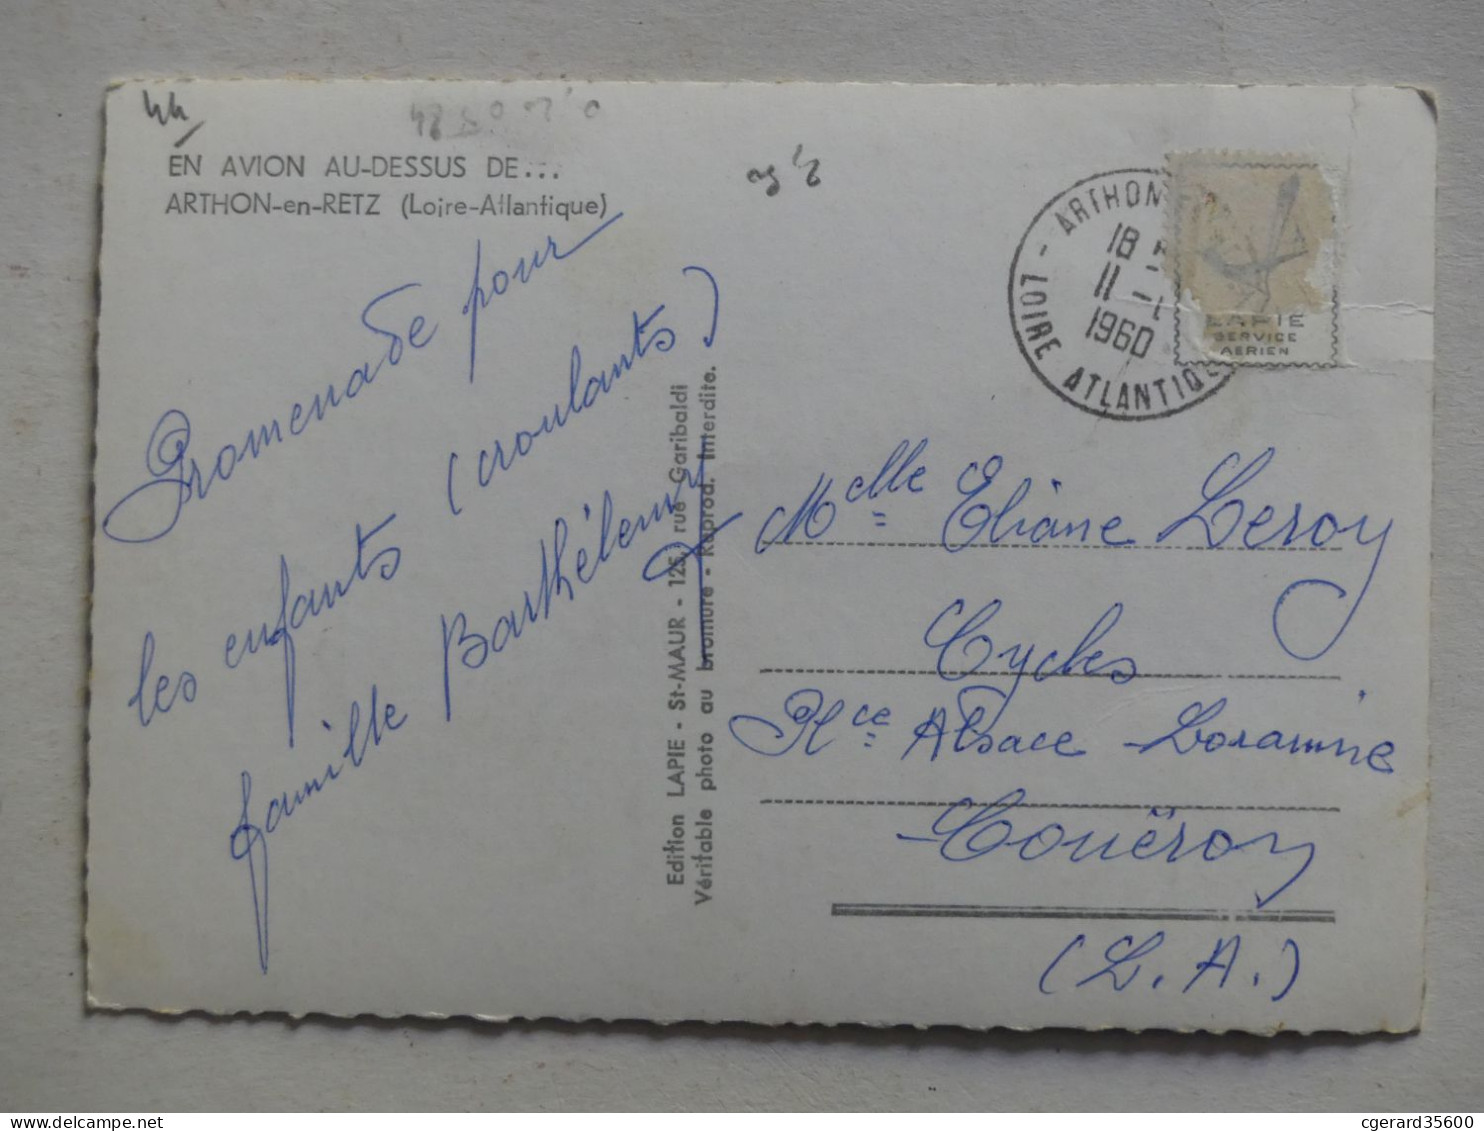 44
EN AVION AU-DESSUS DE...
ARTHON-en-RETZ (Loire-Atlantique)
Promenade pour
les enfants (croulants)
famille Barthélemy
Edition LAPIE - St-MAUR - 125, rue Garibaldi
Véritable photo au bromure - Reprod. Interdite.
ARTHON
18
11 -
1960
LOIRE ATLANTIQU
LAPIE
SERVICE
AERIEN
Melle Eliane Leroy
Cycles
Plce Alsace Lorainne
Couëron
(L.A.)
cgerard35600